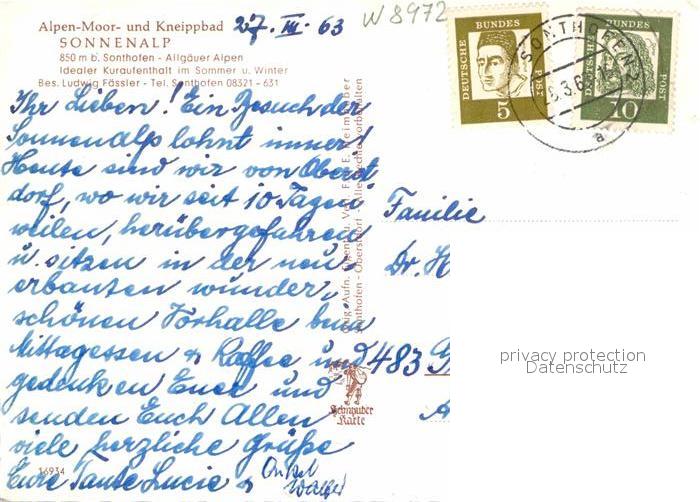 Alpen-Moor- und Kneippbad
SONNENALP
850 m b. Sonthofen - Allgäuer Alpen
Idealer Kuraufenthalt im Sommer u. Winter
Bes. Ludwig Fässler - Tel. Sonthofen 08321 - 631
27. III. 63
W 8972
DEUTSCHE BUNDESPOST
5
DEUTSCHE BUNDESPOST
10
SONTHOFEN
a
Ihr Lieben! Ein Besuch der
Sonnenalp lohnt immer!
Heute sind wir von Oberst
dorf, wo wir seit 10 Tagen
weilen, herübergefahren
u. sitzen in der neu
erbauten wunder
schönen Vorhalle beim
Mittagessen & Kaffee und
gedenken Eurer und
senden Euch Allen
viele herzliche Grüße
Eure Tante Lucie &
Onkel
Walter
16934
Sonthofen - Oberstdorf - Alle Rechte vorbehalten
Schnauder
Karte
Familie
Dr. H
483
privacy protection
Datenschutz